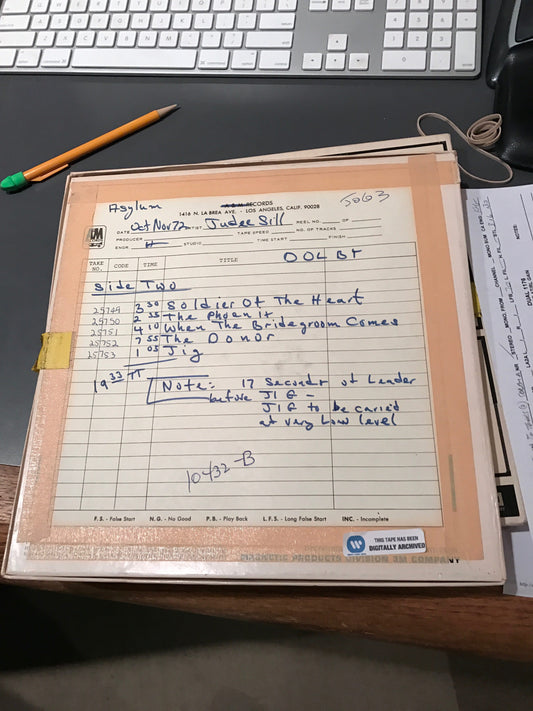 Asylum
A&M RECORDS
5063
1416 N. LA BREA AVE. - LOS ANGELES, CALIF. 90028
DATE Oct Nov 72 ARTIST Judee Sill REEL NO. OF
PRODUCER TAPE SPEED NO. OF TRACKS
ENGR. H STUDIO TIME START FINISH
TAKE NO. CODE TIME TITLE DOLBY
Side Two
25749 3 30 Soldier Of The Heart
25750 2 35 The Phoenix
25751 4 10 When The Bridegroom Comes
25752 7 55 The Donor
25753 1 05 Jig
19 33 TT
Note: 17 Seconds of Leader
before JIG -
JIG to be caried
at very Low level
10432-B
F.S. - False Start N.G. - No Good P.B. - Play Back L.F.S. - Long False Start INC. - Incomplete
THIS TAPE HAS BEEN
DIGITALLY ARCHIVED
MAGNETIC PRODUCTS DIVISION 3M COMPANY